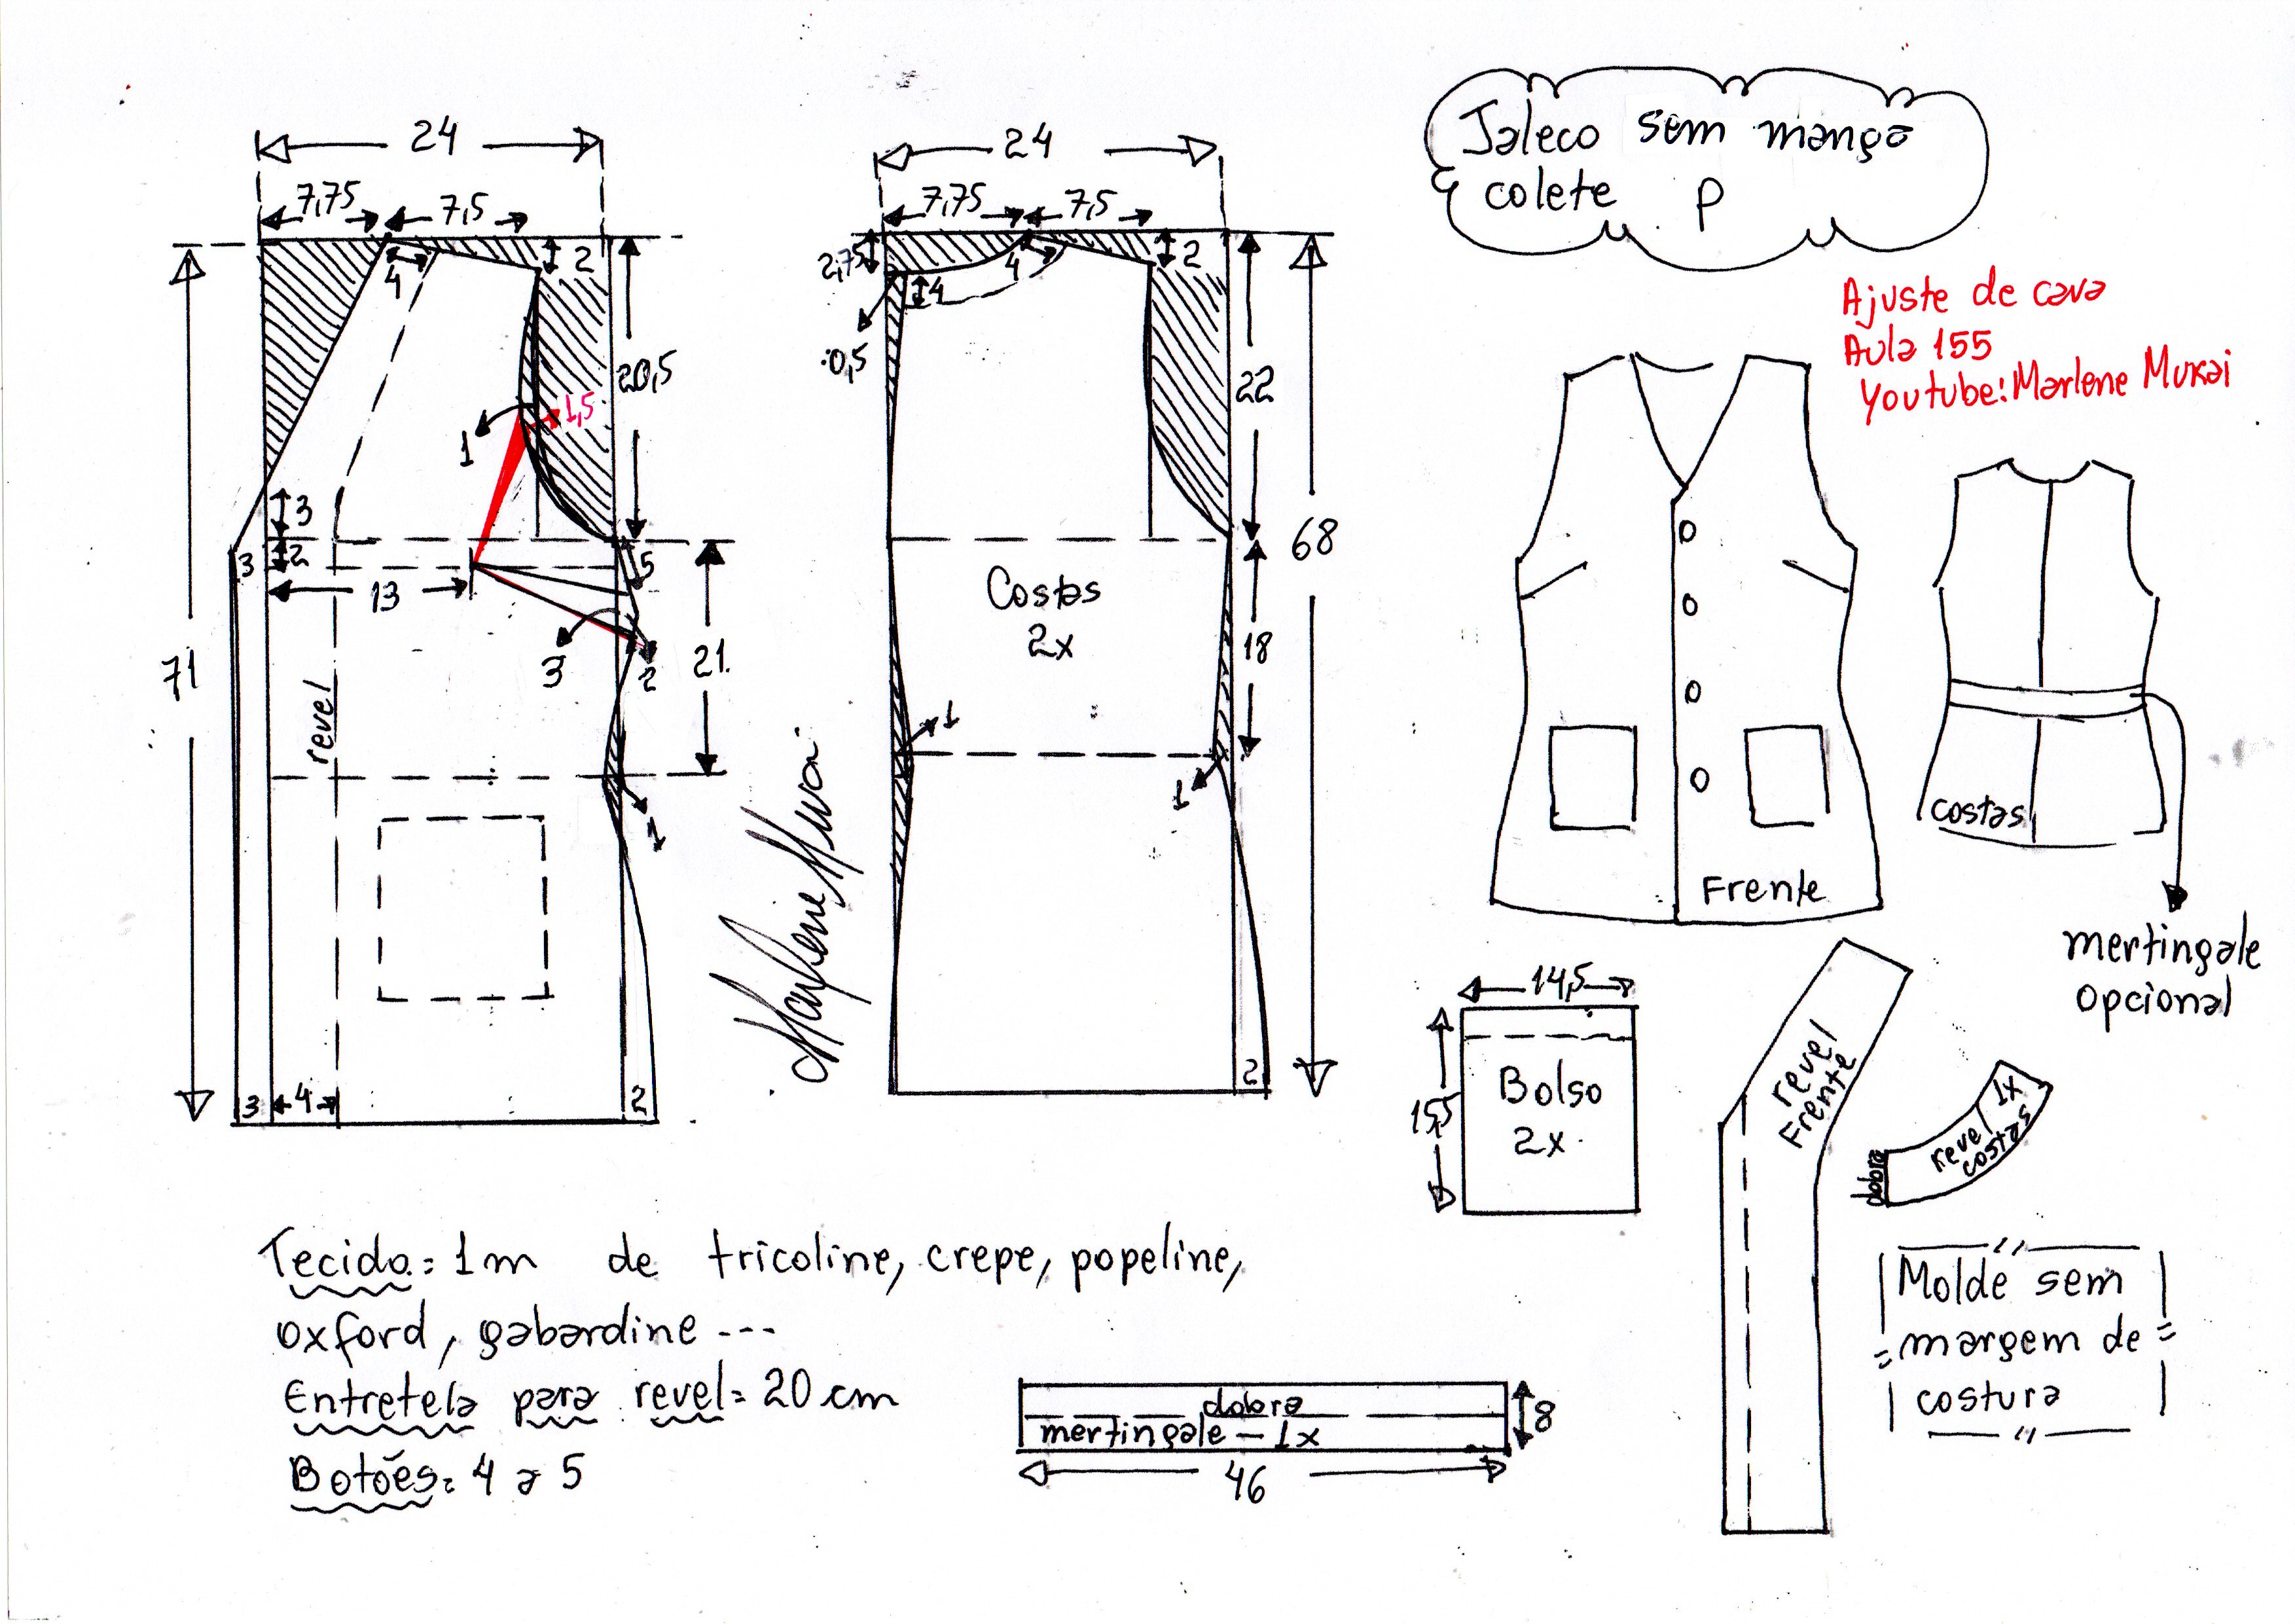 Jaleco sem manga
colete P
Ajuste de cava
Aula 155
Youtube: Marlene Mukai
24
7,75
7,5
4
2
20,5
1,5
1
3
2
3
5
13
71
3
2
21
revel
1
3
4
2
24
7,75
7,5
2,75
4
4
2
0,5
22
68
Costas
2x
18
1
1
2
Marlene Mukai
Frente
costas
mertingale
opcional
14,5
15,5
Bolso
2x
revel
Frente
revel
costas
1x
dobra
Molde sem
margem de
costura
Tecido = 1m de tricoline, crepe, popeline,
oxford, gabardine ---
Entretela para revel = 20 cm
Botões = 4 a 5
dobra
mertingale - 1x
8
46